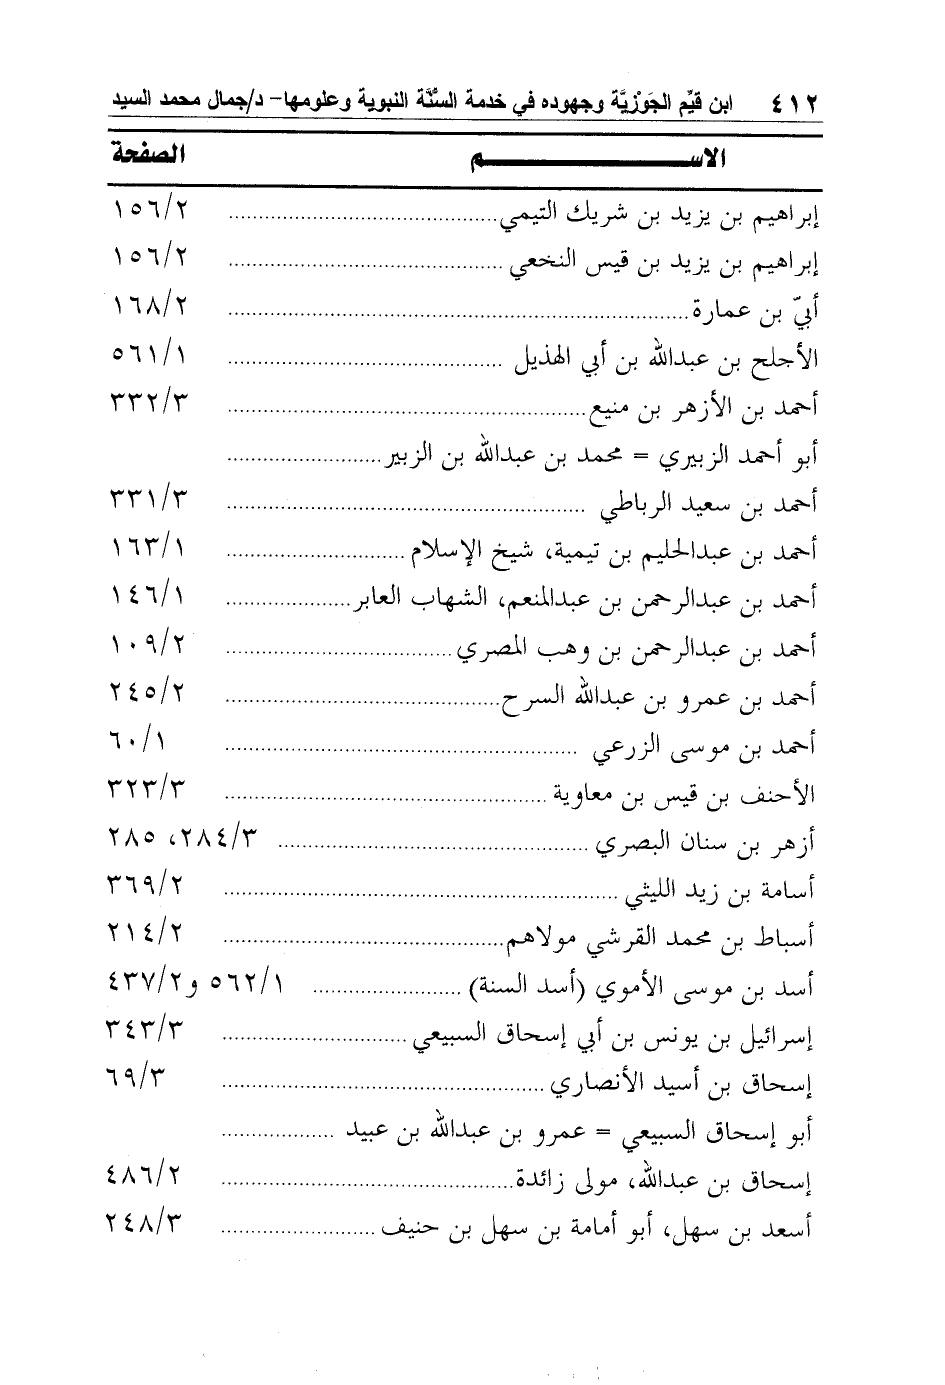 ٤١٢ ابن قيِّم الجَوْزيَّة وجهوده في خدمة السُّنَّة النبوية وعلومها- د/جمال محمد السيد
الاســـــم الصفحة
إبراهيم بن يزيد بن شريك التيمي ........ ١٥٦/٢
إبراهيم بن يزيد بن قيس النخعي ........ ١٥٦/٢
أبيّ بن عمارة ........ ١٦٨/٢
الأجلح بن عبدالله بن أبي الهذيل ........ ٥٦١/١
أحمد بن الأزهر بن منيع ........ ٣٣٢/٣
أبو أحمد الزبيري = محمد بن عبدالله بن الزبير ........
أحمد بن سعيد الرباطي ........ ٣٣١/٣
أحمد بن عبدالحليم بن تيمية، شيخ الإسلام ........ ١٦٣/١
أحمد بن عبدالرحمن بن عبدالمنعم، الشهاب العابر ........ ١٤٦/١
أحمد بن عبدالرحمن بن وهب المصري ........ ١٠٩/٢
أحمد بن عمرو بن عبدالله السرح ........ ٢٤٥/٢
أحمد بن موسى الزرعي ........ ٦٠/١
الأحنف بن قيس بن معاوية ........ ٣٢٣/٣
أزهر بن سنان البصري ........ ٢٨٤/٣، ٢٨٥
أسامة بن زيد الليثي ........ ٣٦٩/٢
أسباط بن محمد القرشي مولاهم ........ ٢١٤/٢
أسد بن موسى الأموي (أسد السنة) ........ ٥٦٢/١ و٤٣٧/٢
إسرائيل بن يونس بن أبي إسحاق السبيعي ........ ٣٤٣/٣
إسحاق بن أسيد الأنصاري ........ ٦٩/٣
أبو إسحاق السبيعي = عمرو بن عبدالله بن عبيد ........
إسحاق بن عبدالله، مولى زائدة ........ ٤٨٦/٢
أسعد بن سهل، أبو أمامة بن سهل بن حنيف ........ ٢٤٨/٣